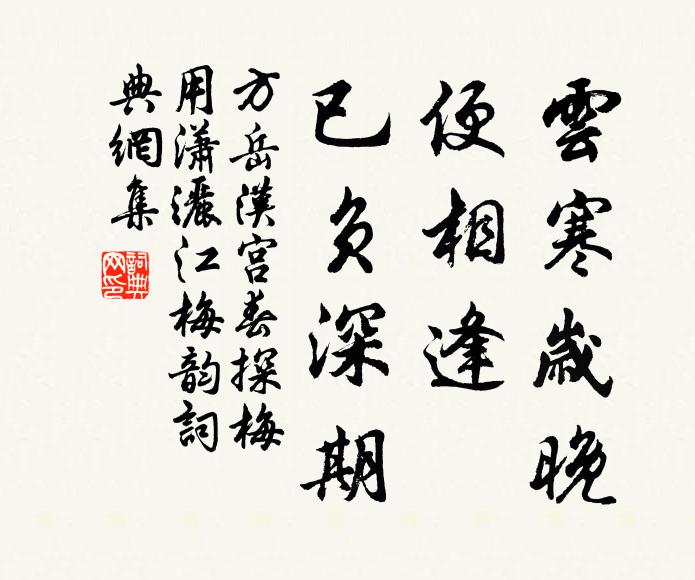 雲寒歲晚
便相逢
已負深期
方岳漢宮春探梅
用瀟灑江梅韵詞
典網集
詞典網印